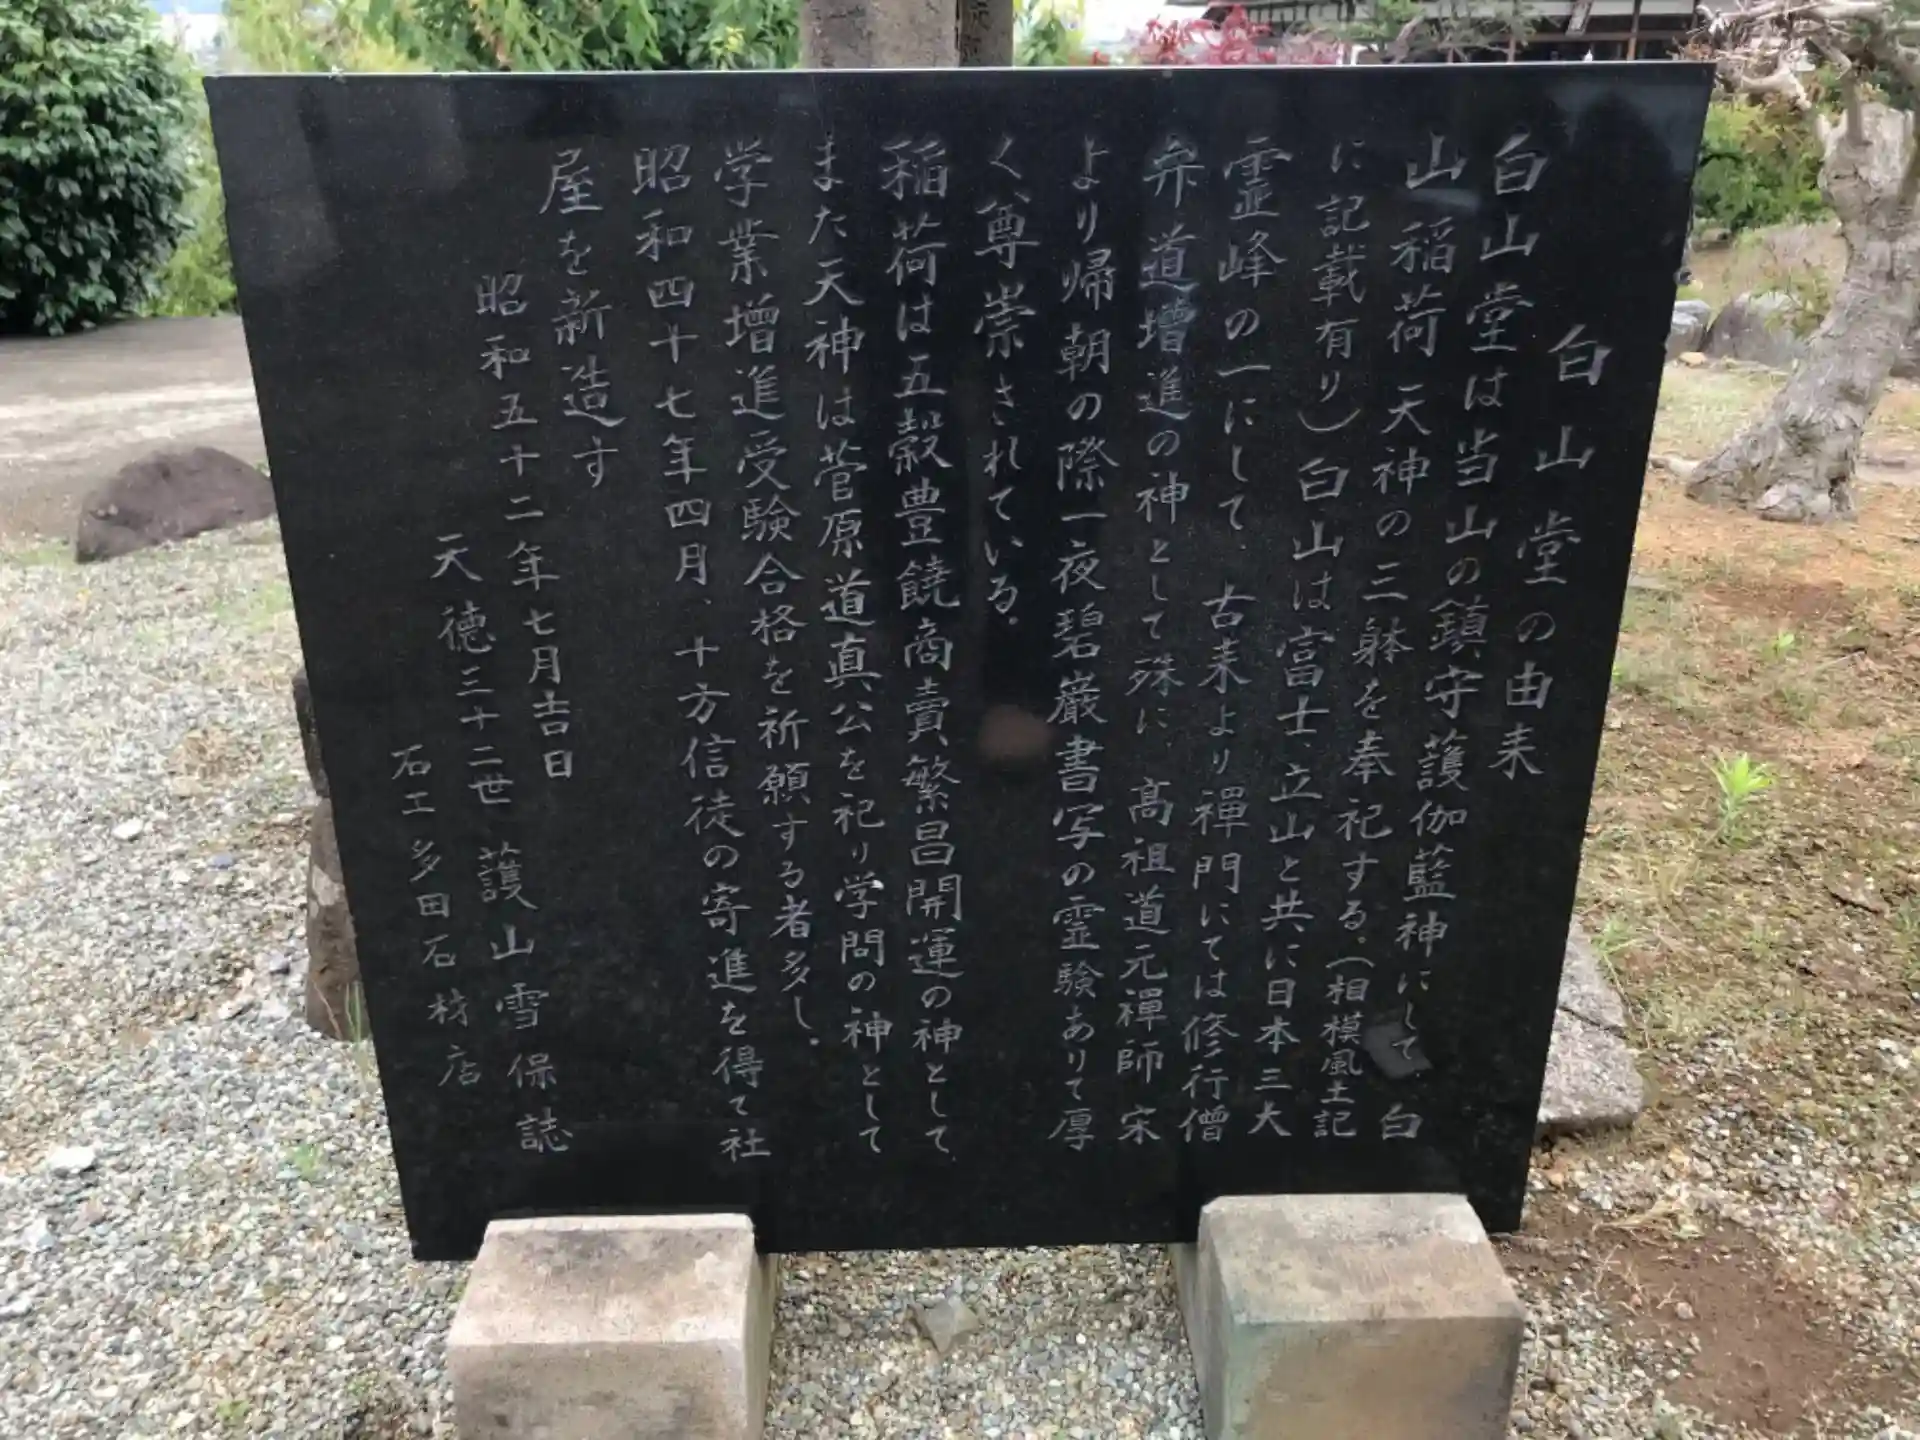 白山堂の由来
白山堂は当山の鎮守護伽藍神にして、白
山 稲荷 天神の三躰を奉祀する。(相模風土記
に記載有り)白山は富士、立山と共に日本三大
霊峰の一にして、古来より禅門にては修行僧
弁道増進の神として殊に、高祖道元禅師 宋
より帰朝の際一夜碧巌書写の霊験ありて厚
く、尊崇されている。
稲荷は五穀豊饒商賣繁昌開運の神として、
また天神は菅原道真公を祀り学問の神として
学業増進受験合格を祈願する者多し。
昭和四十七年四月、十方信徒の寄進を得て社
屋を新造す
昭和五十二年七月吉日
天徳三十二世 護山雪保誌
石工多田石材店